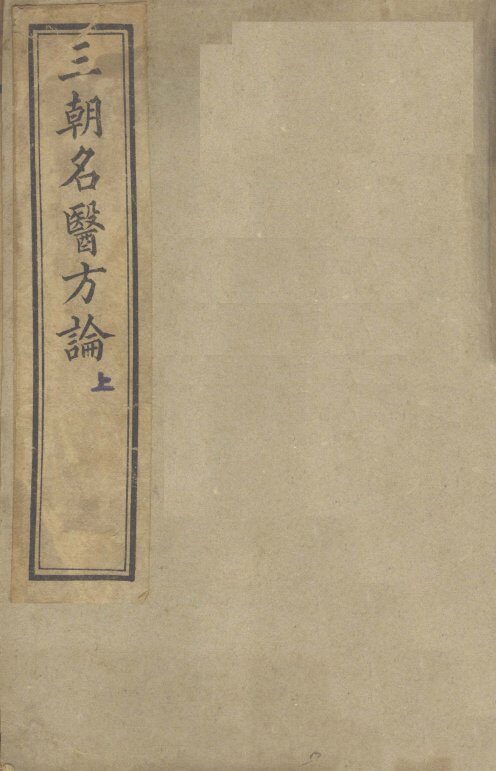 三朝名醫方論
上